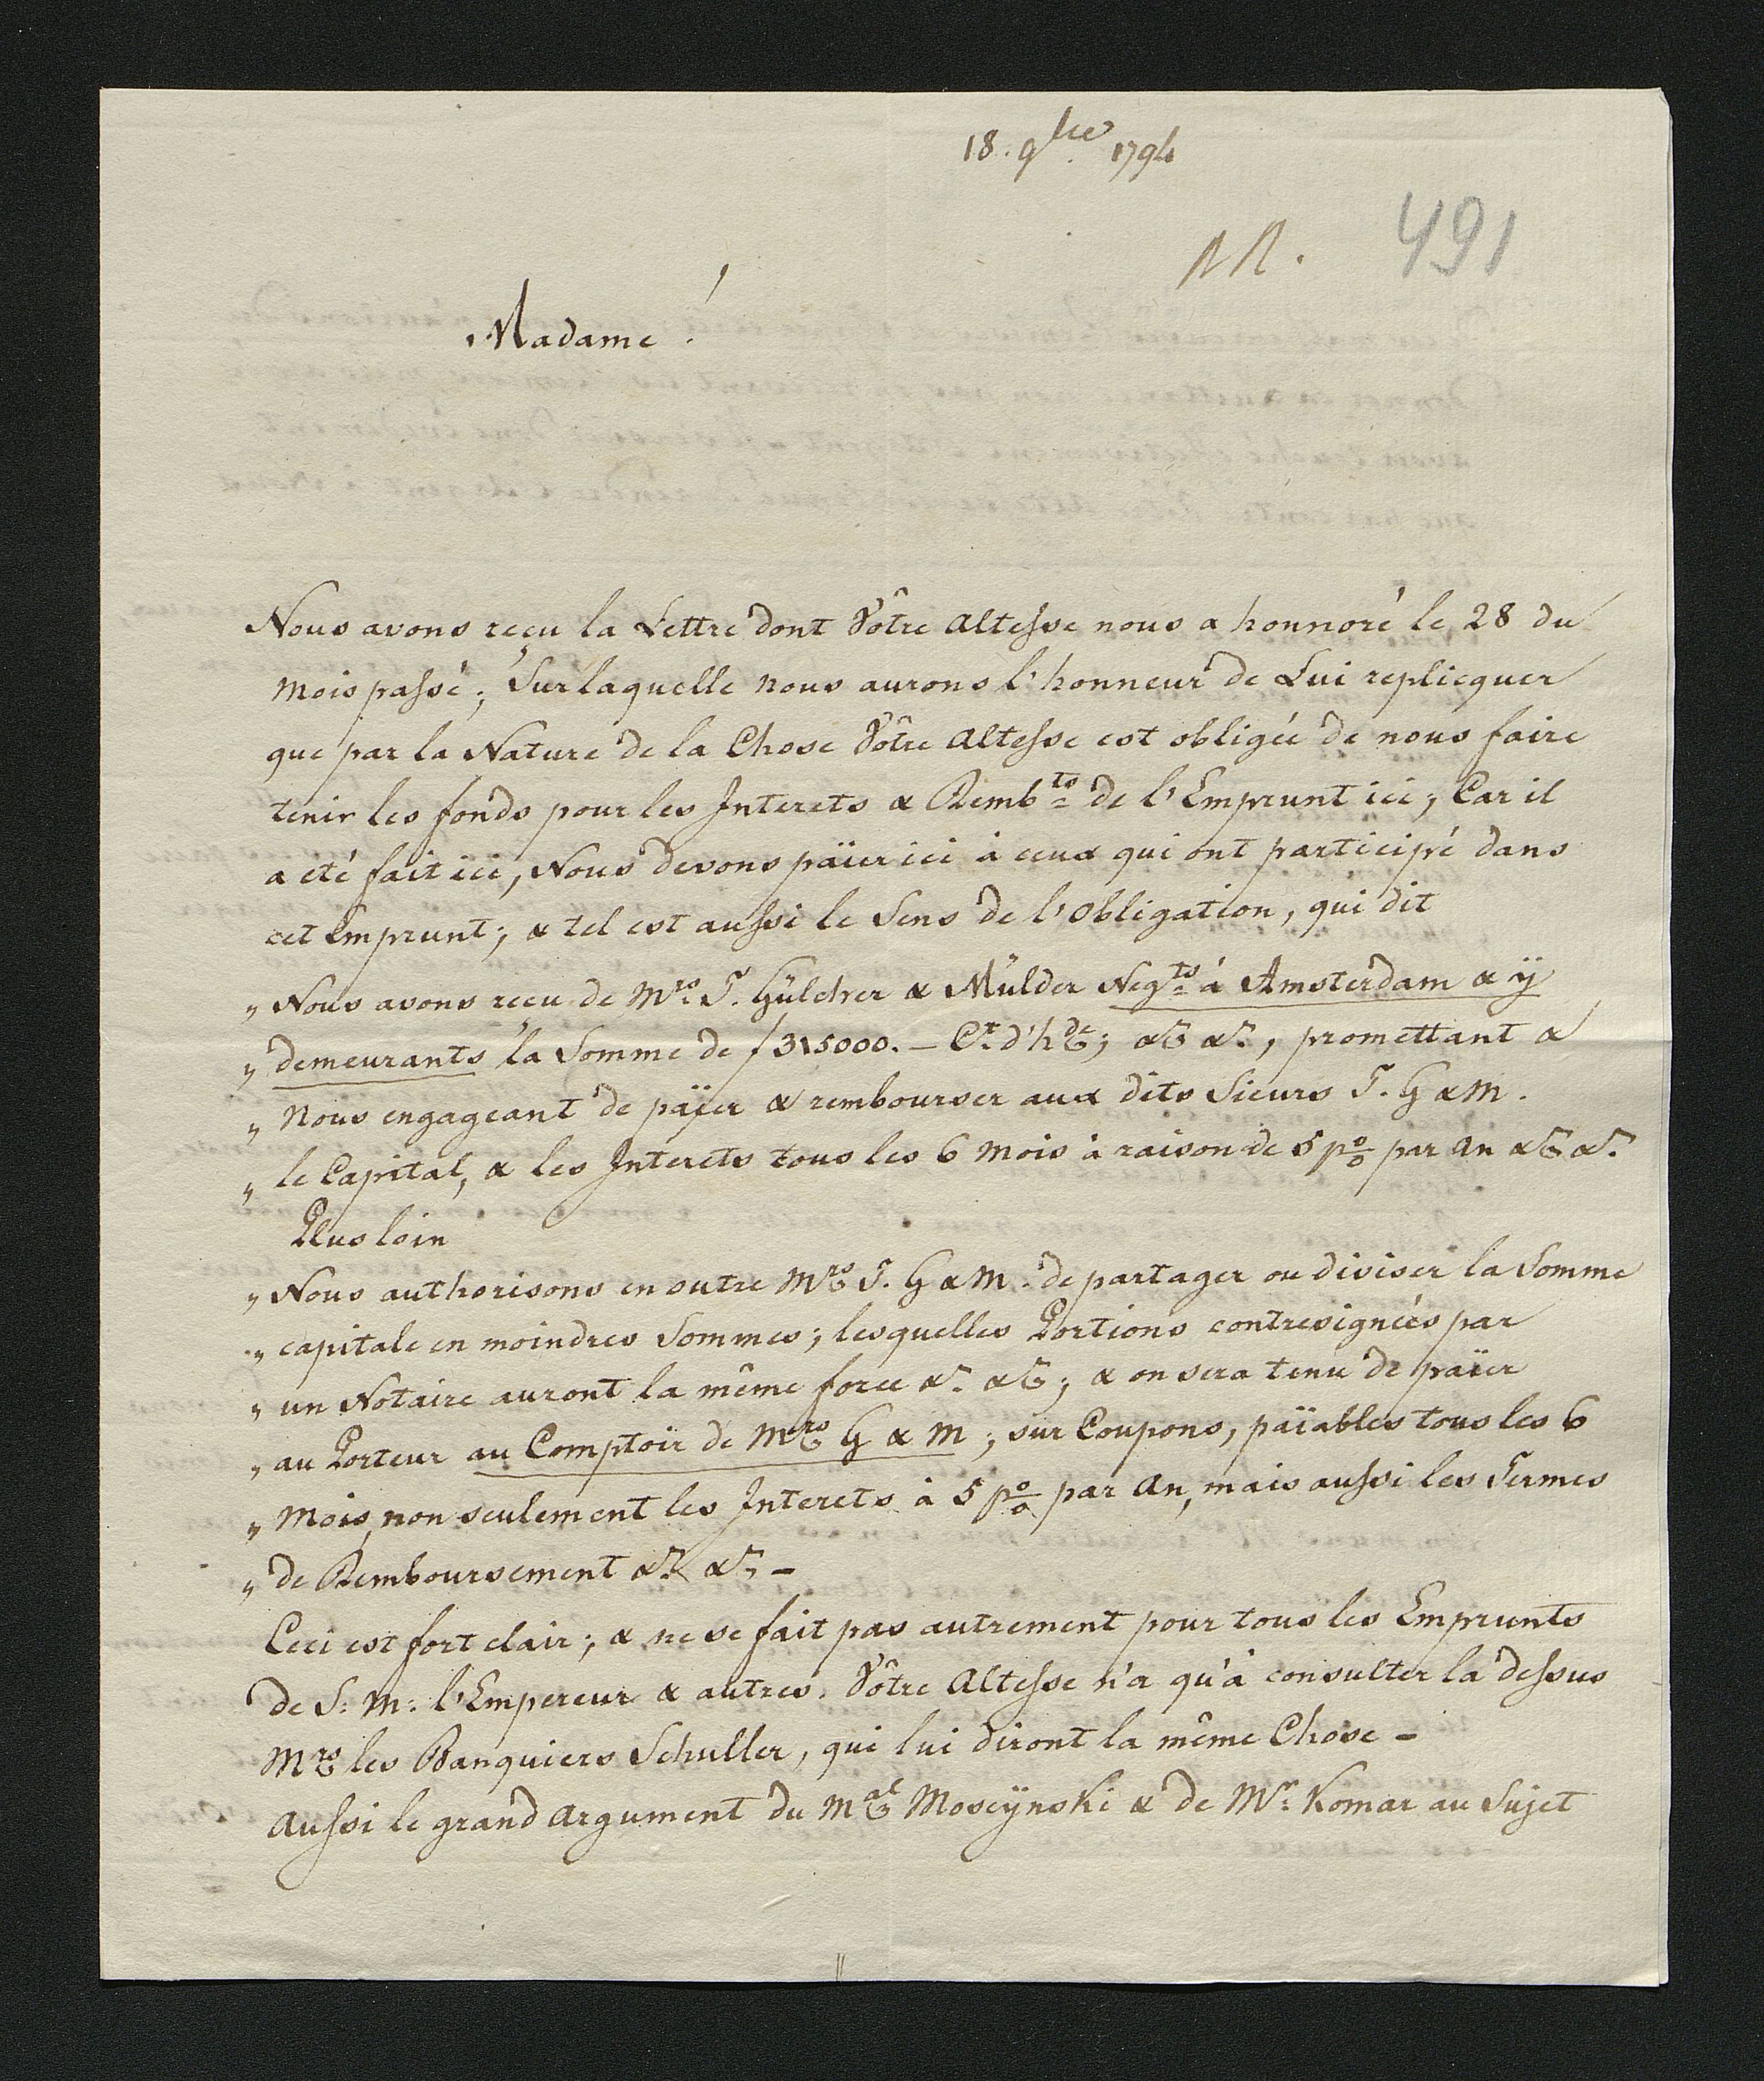 18. 9bre 1794
M. 491
Madame!
Nous avons reçu la Lettre dont Vôtre Altesse nous a honnoré le 28 du
mois passé; Sur laquelle nous aurons l'honneur de Lui replicquer
que par la Nature de la Chose Vôtre Altesse est obligée de nous faire
tenir les fonds pour les Interets & Rembts de l'Emprunt ici; Car il
a eté fait ici, Nous devons païer ici à ceux qui ont participé dans
cet Emprunt; & tel est aussi le Sens de l'Obligation, qui dit
„ Nous avons reçu de Mrs T. Gülcher & Mülder Negts à Amsterdam & ÿ
„ demeurants la Somme de f 315000.– Ct d'hde; &c &c, promettant &
„ Nous engageant de päier & rembourser aux dits Sieurs T. G & M.
„ le Capital, & les Interets tous les 6 mois à raison de 5 po/o par An &c &c.
Plus loin
„ Nous authorisons en outre Mrs T. G & M. de partager ou diviser la Somme
„ capitale en moindres Sommes; lesquelles Portions contresignées par
„ un Notaire auront la même force &c. &c; & on sera tenu de païer
„ au Porteur au Comptoir de Mrs G & M; sur Coupons, païables tous les 6
„ Mois, non seulement les Interets à 5 po/o par An, mais aussi les Termes
„ de Remboursement &c. &c –
Ceci est fort clair; & ne se fait pas autrement pour tous les Emprunts
de S: M: l'Empereur & autres. Vôtre Altesse n'a qu'à consulter la dessus
Mrs les Banquiers Schuller, qui lui diront la même Chose –
Aussi le grand Argument du Mal Moscÿnski & de Mr. Komar au Sujet